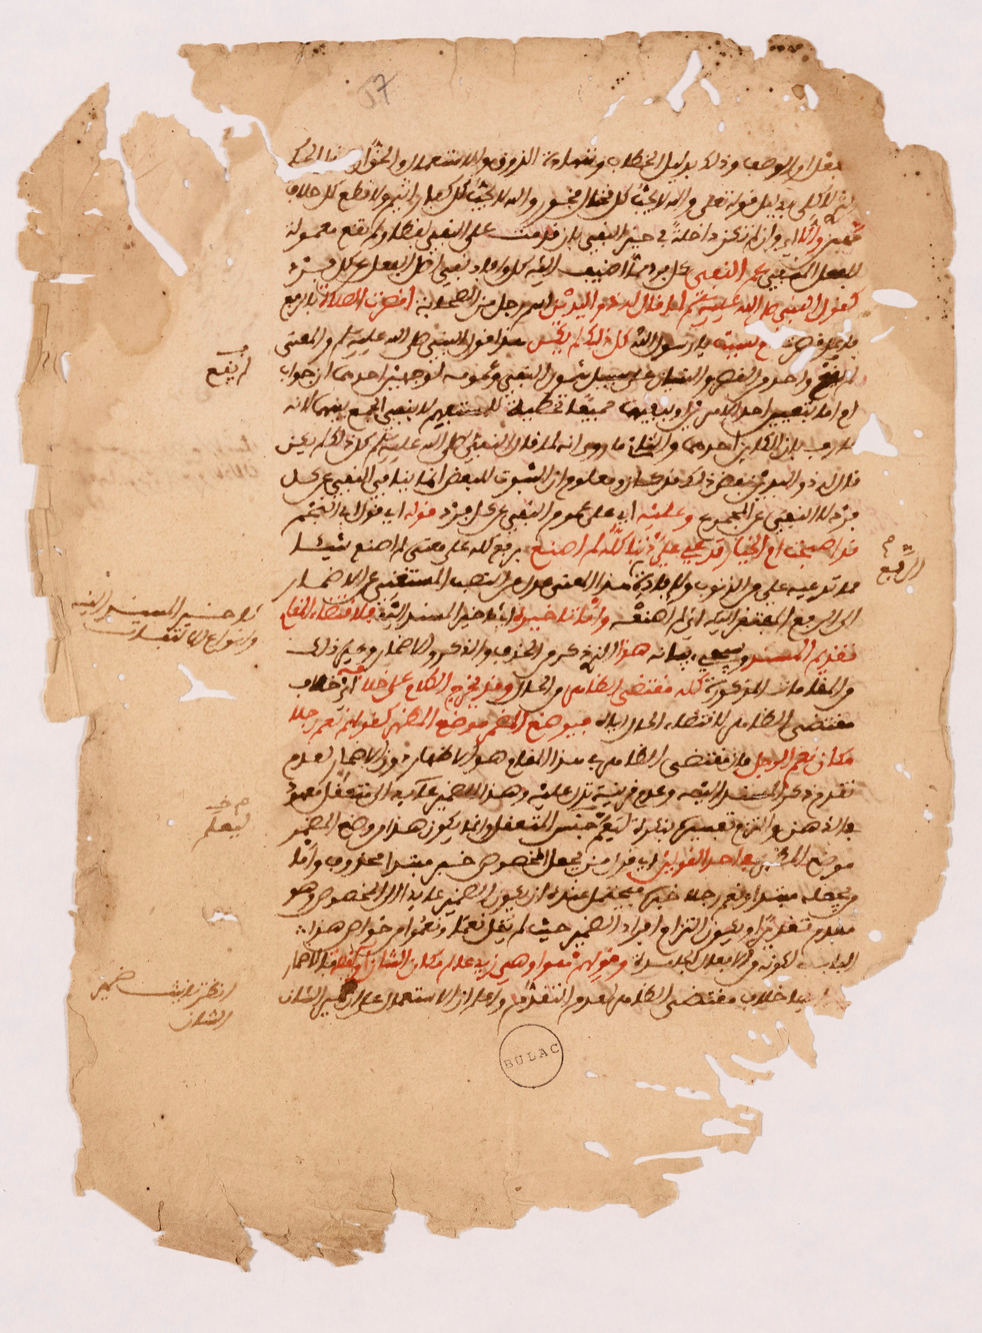 بالفعل او الوصف وذلك بدليل الخطاب وشهادة الذوق والاستعمال والحق ان هذا الحكم
اكثري لا كلي بدليل قوله تعلى والله لا يحب كل مختال فخور والله لا يحب كل كفار اثيم ولا تطع كل حلاف
مهين والا اي وان لم تكن داخلة في حيز النفي بان قدمت على النفي لفظا ولم تقع معمولة
للفعل المنفي عم النفي كل فرد مما اضيف اليه كل وافاد نفي اصل الفعل عن كل فرد
كقول النبي صلى الله عليه وسلم لما قال له ذو اليدين اسم رجل من الصحابة اقصرت الصلاة بالرفع
فاعل قصرت ام نسيت يا رسول الله كل ذلك لم يكن هذا قول النبي صلى الله عليه وسلم والمعنى
لم يقع واحد من القصر والنسيان على سبيل شمول النفي وعمومه لوجهين احدهما ان جواب
ام اما بتعيين احد الامرين او بنفيهما جميعا تخطئة للمستفهم لا بنفي الجمع بينهما لانه
عارف بان الكاين احدهما والثاني ما روي انه لما قال النبي صلى الله عليه وسلم كل ذلك لم يكن
قال له ذو اليدين بعض ذلك قد كان ومعلوم ان الثبوت للبعض انما ينافي النفي عن كل
فرد لا النفي عن المجموع وعليه اي على عموم النفي عن كل فرد قوله اي قول ابي النجم
قد اصبحت ام الخيار تدعي علي ذنبا كله لم اصنع برفع كله على معنى لم اصنع شيئا
مما تدعيه علي من الذنوب ولافادة هذا المعنى عدل عن النصب المستغني عن الاضمار
الى الرفع المفتقر اليه اي لم اصنعه واما تاخيره اي تاخير المسند اليه فلاقتضاء المقام
تقديم المسند وسيجيء بيانه هذا الذي ذكر من الحذف والذكر والاضمار وغير ذلك
من المقامات المذكورة كله مقتضى الظاهر من الحال وقد يخرج الكلام على خلافه اي خلاف
مقتضى الظاهر لاقتضاء الحال اياه فيوضع المضمر موضع المظهر كقولهم نعم رجلا
مكان نعم الرجل فان مقتضى الظاهر في هذا المقام هو الاظهار دون الاضمار لعدم
تقدم ذكر المسند اليه وعدم قرينة تدل عليه وهذا الضمير عائد الى متعقل معهود
في الذهن والتزم تفسيره بنكرة ليعلم جنس المتعقل وانما يكون هذا من وضع المضمر
موضع المظهر في احد القولين اي قول من يجعل المخصوص خبر مبتدا محذوف واما
من يجعله مبتدا ونعم رجلا خبره فيحتمل عنده ان يكون الضمير عايدا الى المخصوص وهو
مقدم تقديرا ويكون التزام افراد الضمير حيث لم يقل نعما ونعموا من خواص هذا
الباب لكونه من الافعال الجامدة وقولهم هو او هي زيد عالم مكان الشان او القصة فالاضمار
فيه ايضا خلاف مقتضى الظاهر لعدم التقدم واعلم ان الاستعمال على ان ضمير الشان
لم يقع
الرفع
ليعلم
انظر تانيث ضمير
الشان
57
BULAC